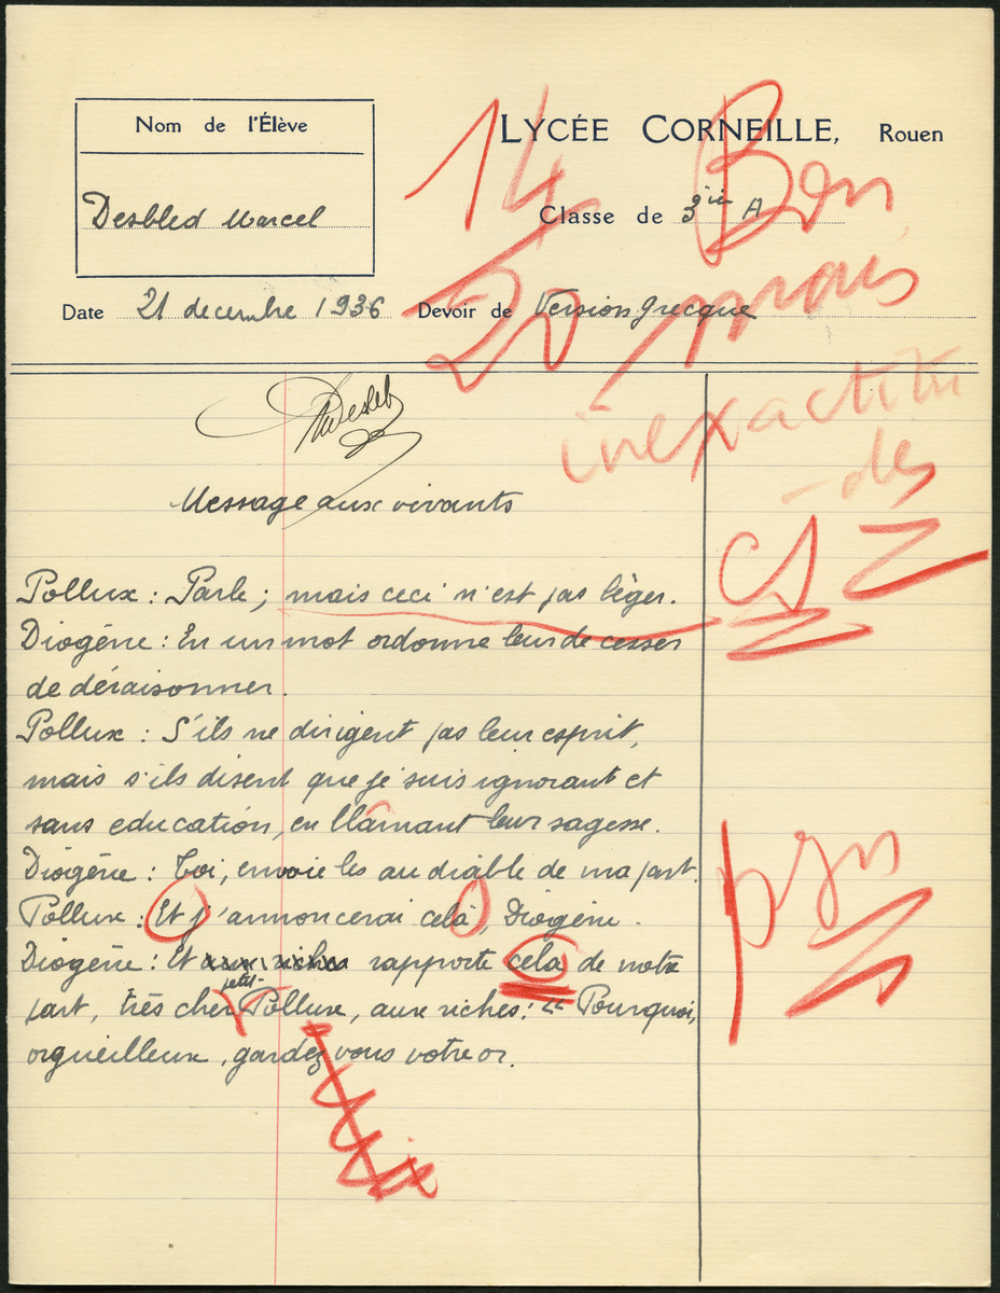 Nom de l'Élève
LYCÉE CORNEILLE, Rouen
14
20
Bon
mais
inexactitu
-des
Desbled Marcel
Classe de 3ie A
Date 21 decembre 1936 Devoir de Version grecque
Message aux vivants
CS
Pollux : Parle ; mais ceci n'est pas lèger.
Diogène : En un mot ordonne leur de cesser
de déraisonner.
Pollux : S'ils ne dirigent pas leur esprit,
mais s'ils disent que je suis ignorant et
sans education, en blâmant leur sagesse.
Diogène : Toi, envoie les au diable de ma part.
Pollux : Et j'annoncerai celà, Diogène.
Diogène : Et aux riches rapporte cela de notre
petit
part, très cher Pollux, aux riches : " Pourquoi,
orgueilleux, gardez vous votre or.